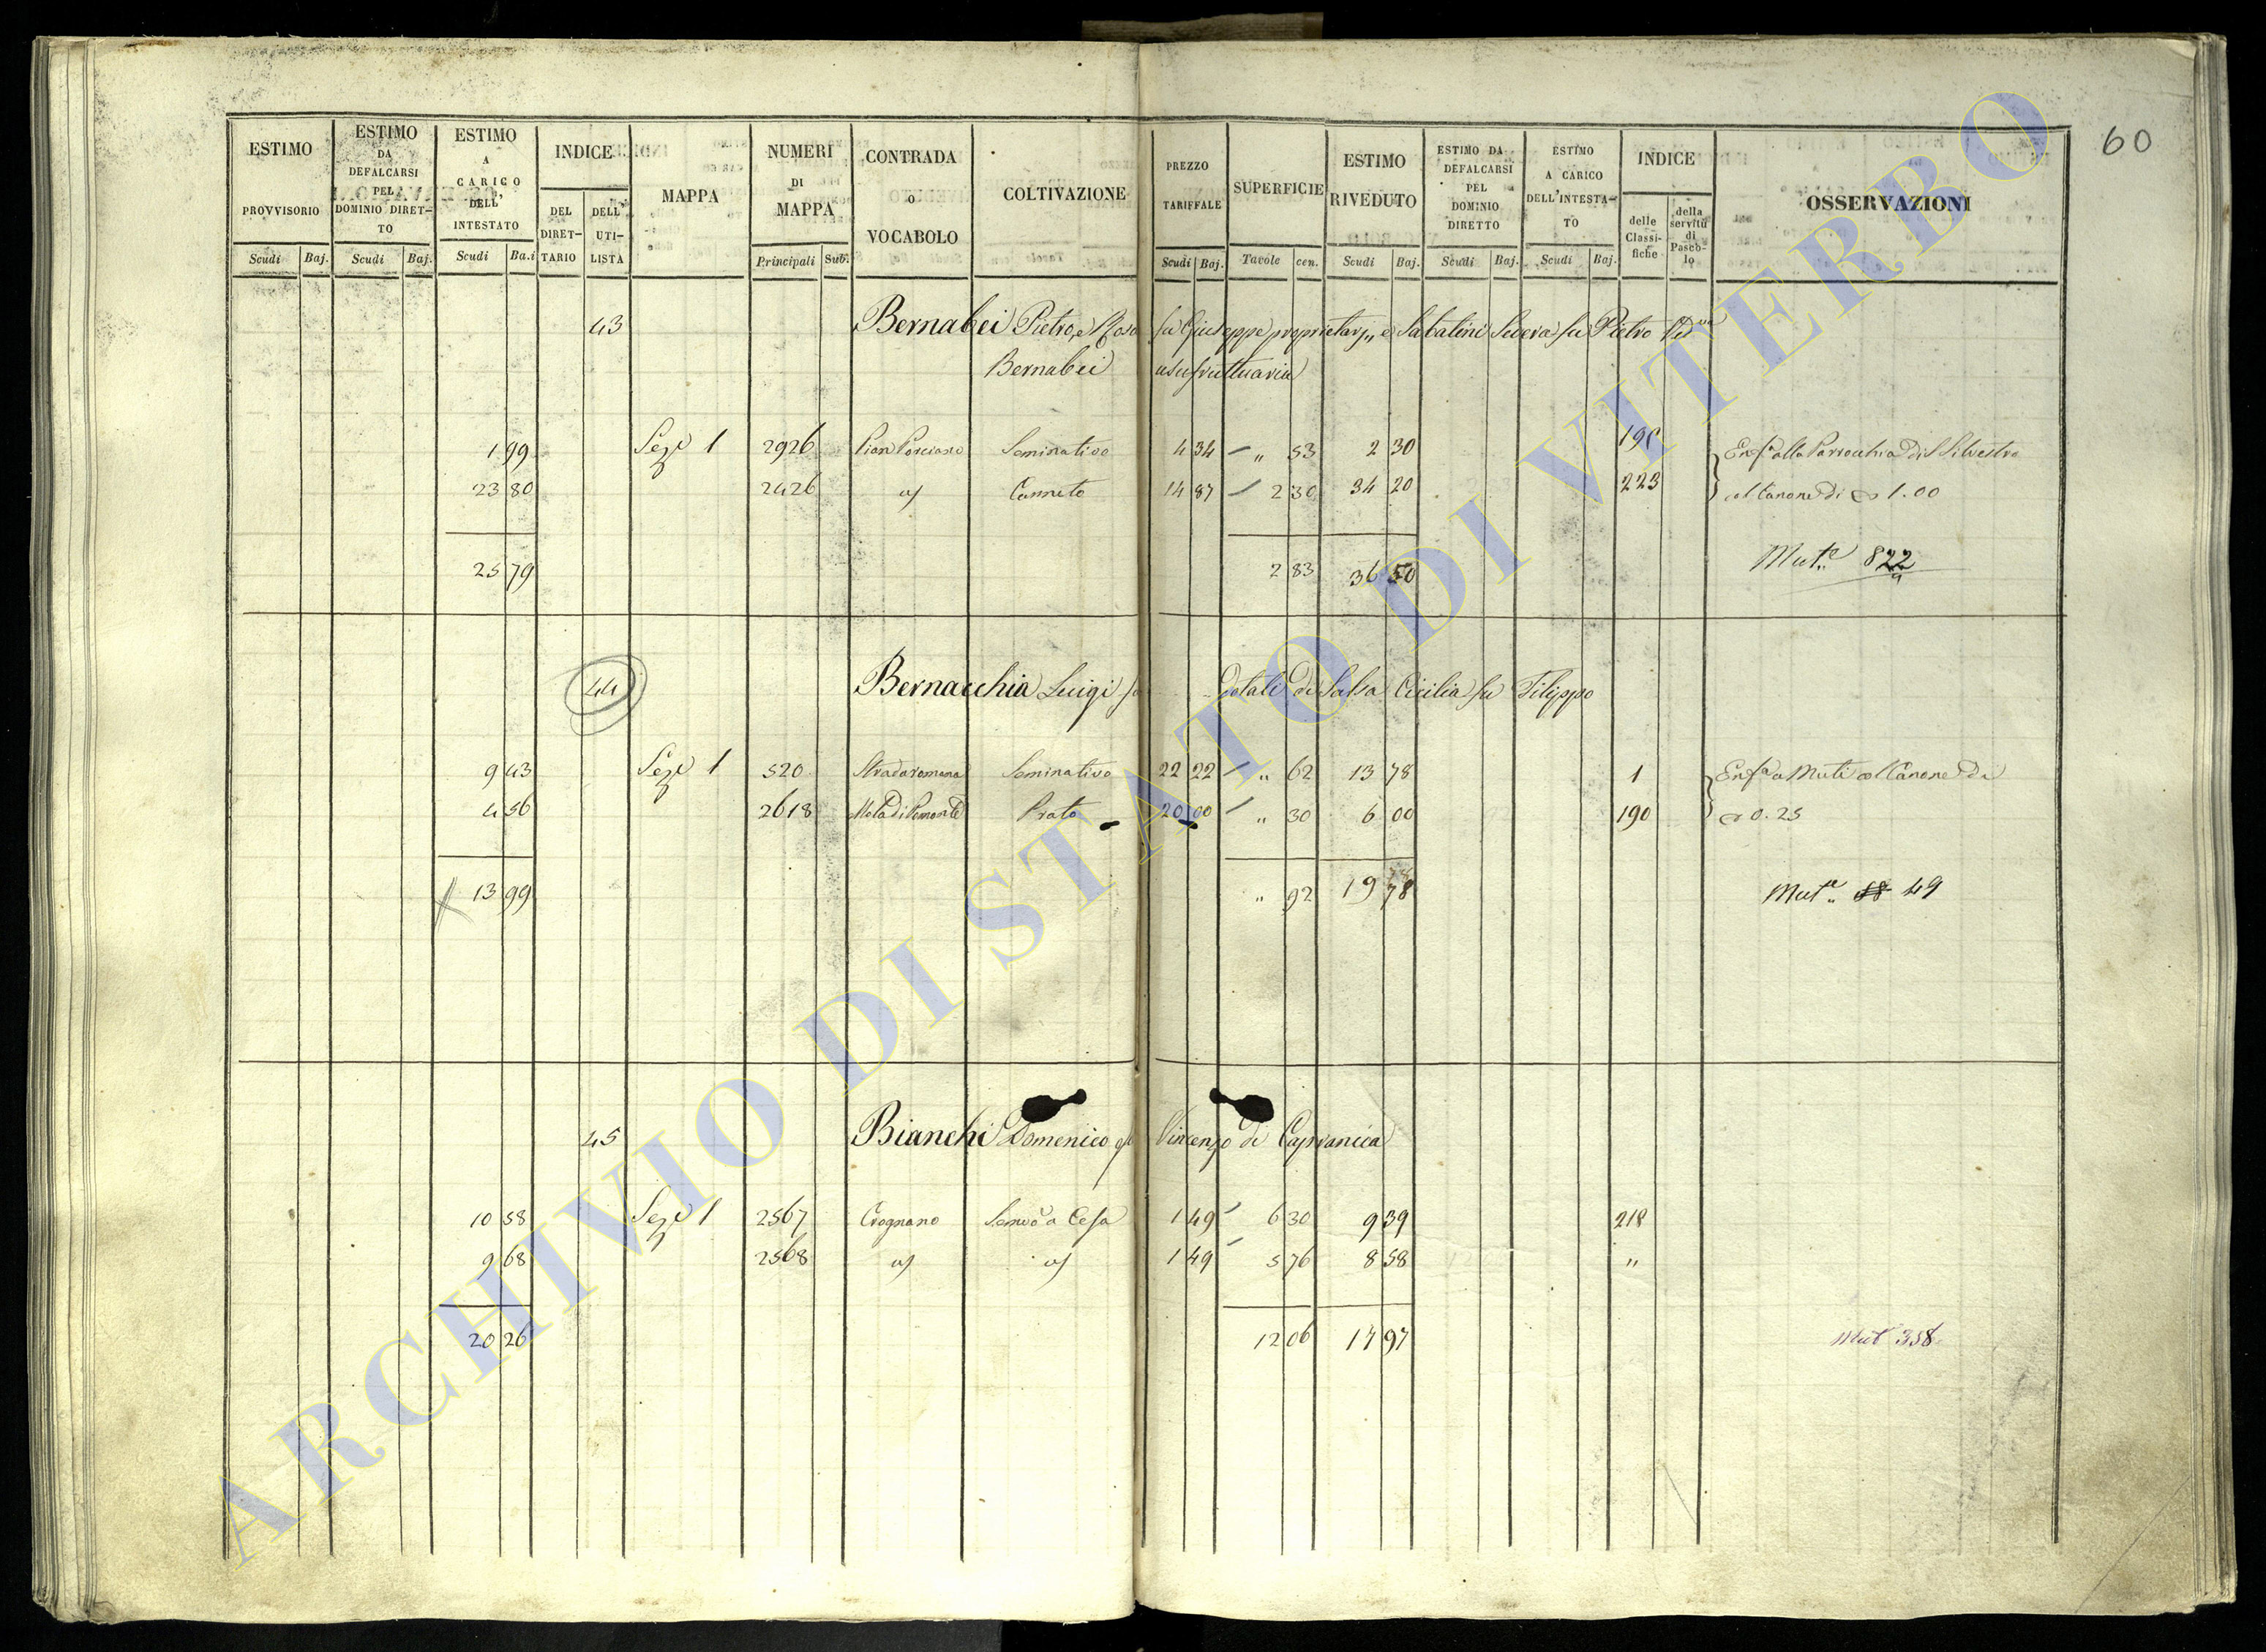 60
ESTIMO PROVVISORIO Scudi Baj.
ESTIMO DA DEFALCARSI PEL DOMINIO DIRET-TO Scudi Baj.
ESTIMO A CARICO DELL' INTESTATO Scudi Ba.i
INDICE DEL DIRET-TARIO DELL' UTI-LISTA
MAPPA
NUMERI DI MAPPA Principali Sub.
CONTRADA O VOCABOLO
COLTIVAZIONE
PREZZO TARIFFALE Scudi Baj.
SUPERFICIE Tavole cen.
ESTIMO RIVEDUTO Scudi Baj.
ESTIMO DA DEFALCARSI PEL DOMINIO DIRETTO Scudi Baj.
ESTIMO A CARICO DELL'INTESTA-TO Scudi Baj.
INDICE delle Classi-fiche della servitù di Pasco-lo
OSSERVAZIONI
43 Bernabei Pietro, e Rosa fu Giuseppe proprietarj,, e Sabatini Sueva fu Pietro Ved.va
Bernabei usufruttuaria
1 99 Sez.e 1 2926 Pian Porciano Seminativo 4 34 — " 53 2 30 Enf.a alla Parrocchia di S. Silvestro
23 80 2426 a/ Canneto 14 87 — 2 30 34 20 223 col Canone di 1.00
25 79 2 83 36 50 Mut.e 822
44 Bernacchia Luigi fu Dotali di Salsa Cicilia fu Filippo
9 43 Sez.e 1 520 Strada romana Seminativo 22 22 — " 62 13 78 1 Enf.a a Muti col Canone di
4 56 2618 Mola di Prato 20 00 — " 30 6 00 190 0.25
13 99 " 92 19 78 Mut.e 49
45 Bianchi Domenico q. Vincenzo di Capranica
10 58 Sez.e 1 2567 Crognano Semvo a Cesa 1 49 — 6 30 9 39 218
9 68 2568 a/ a/ 1 49 — 5 76 8 58 "
20 26 12 06 17 97 Mut 358
ARCHIVIO DI STATO DI VITERBO